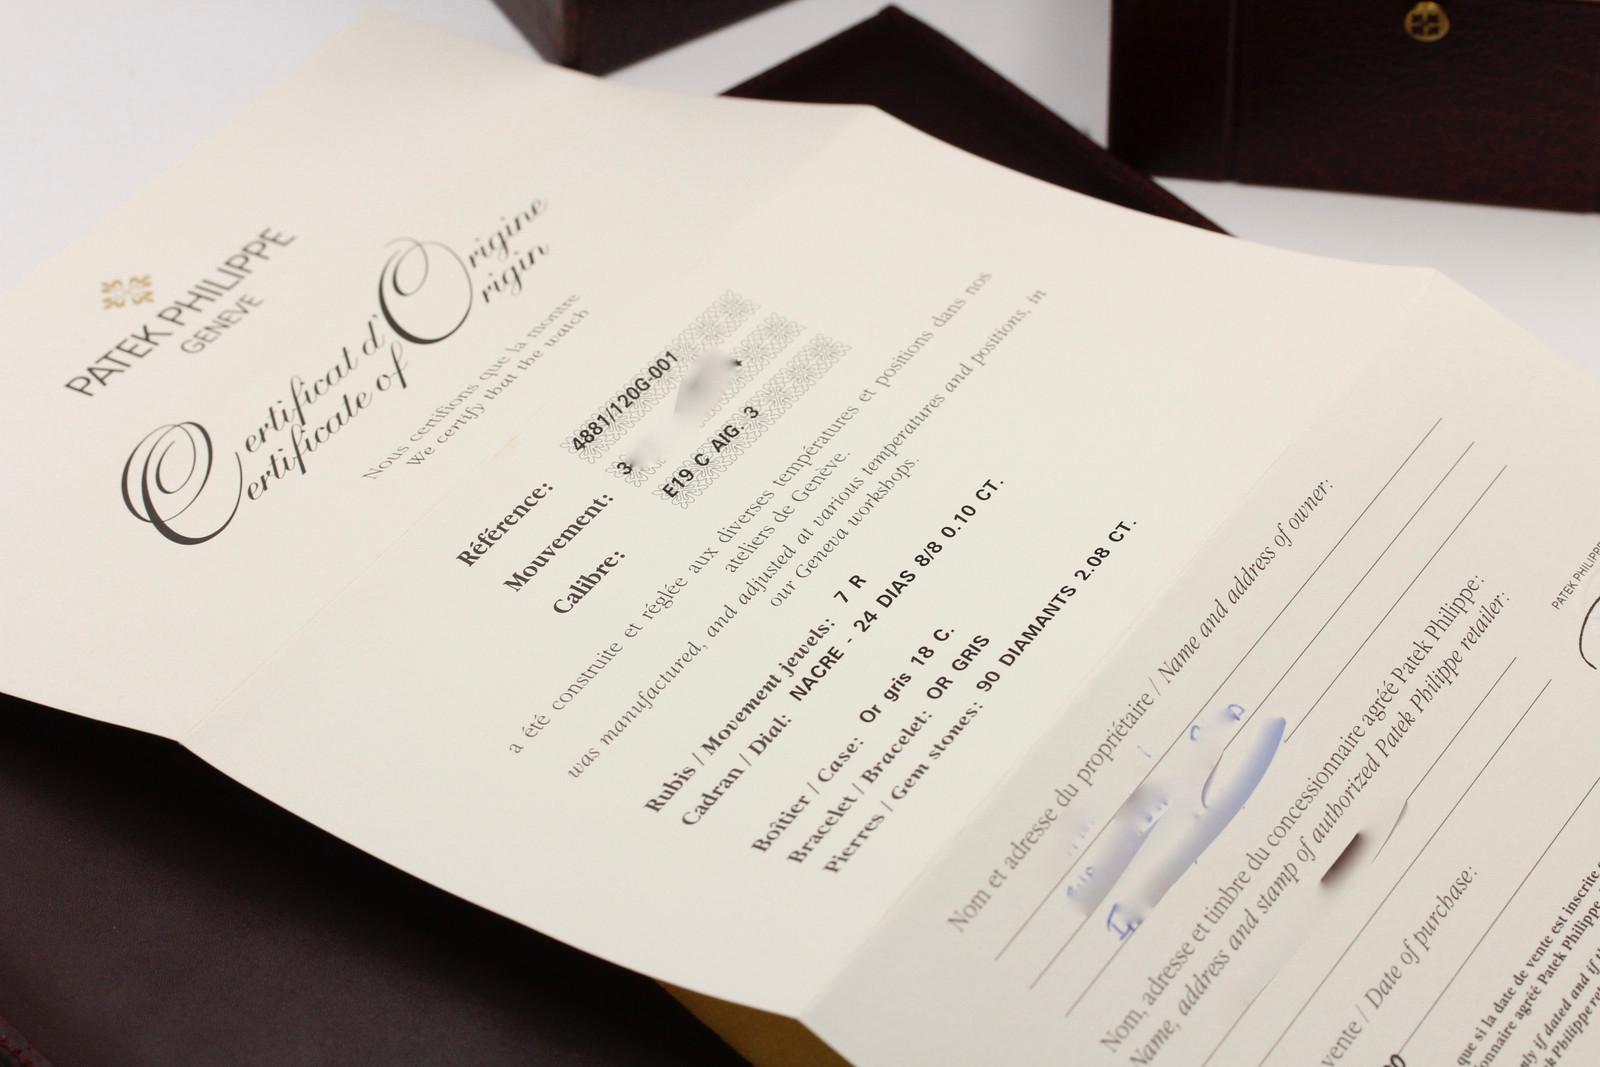 PATEK PHILIPPE
GENEVE
Certificat d'Origine
Certificate of Origin
Nous certifions que la montre
We certify that the watch
Référence: 4881/120G-001
Mouvement: 3
Calibre: E19 C AIG. 3
a été construite et réglée aux diverses températures et positions dans nos
ateliers de Genève.
was manufactured, and adjusted at various temperatures and positions, in
our Geneva workshops.
Rubis / Movement jewels: 7 R
Cadran / Dial: NACRE - 24 DIAS 8/8 0.10 CT.
Boîtier / Case: Or gris 18 C.
Bracelet / Bracelet: OR GRIS
Pierres / Gem stones: 90 DIAMANTS 2.08 CT.
Nom et adresse du propriétaire / Name and address of owner:
Nom, adresse et timbre du concessionnaire agréé Patek Philippe:
Name, address and stamp of authorized Patek Philippe retailer:
vente / Date of purchase:
PATEK PHILIPPE
que si la date de vente est inscrite
agréé Patek Philippe
if dated and if
Philippe